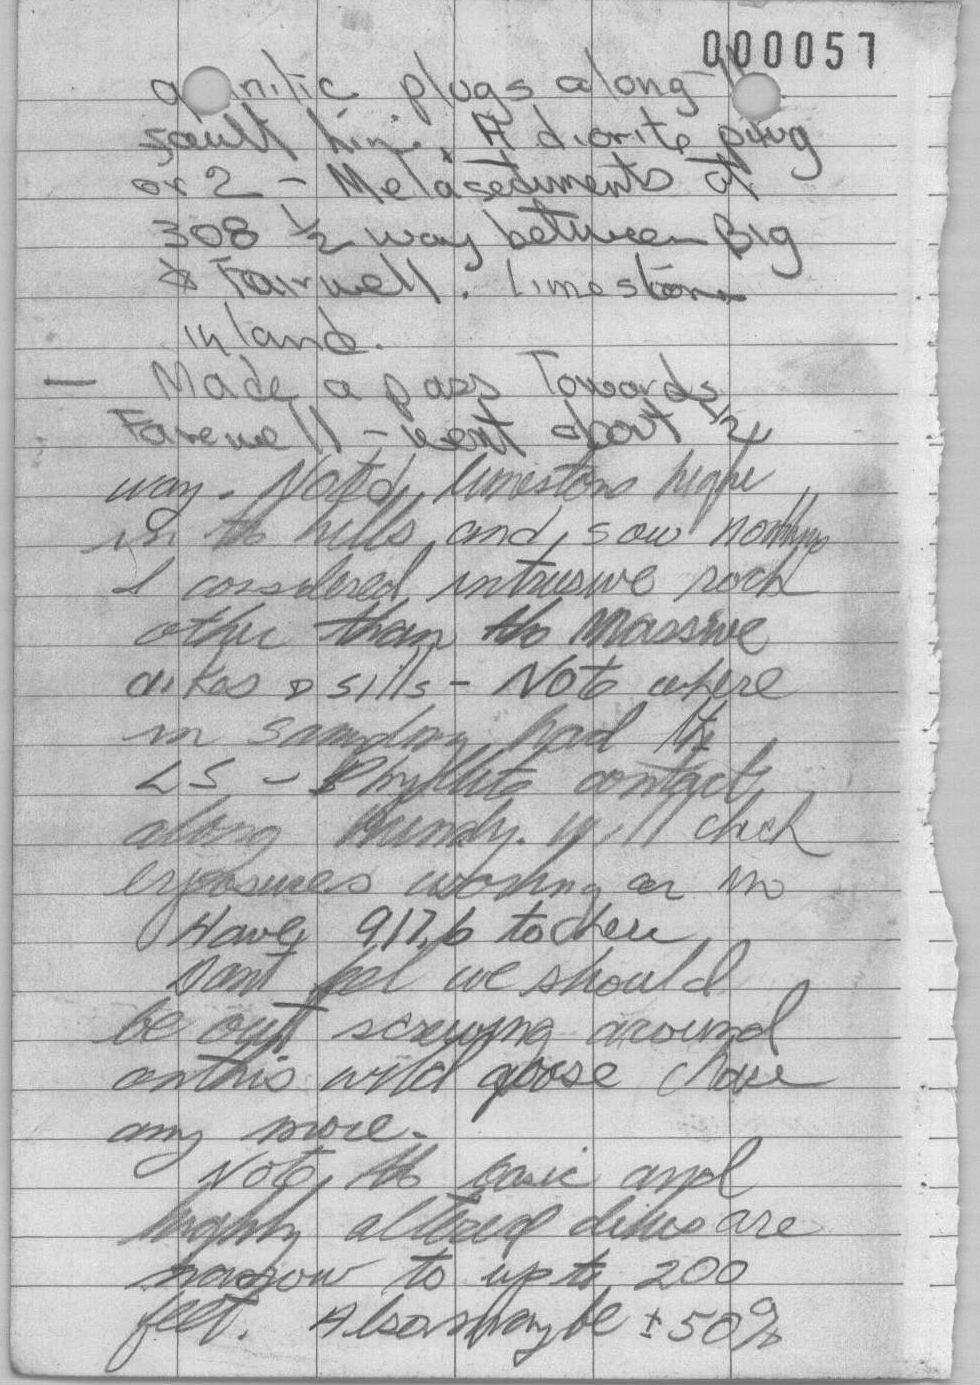 000057
granitic plugs along the
fault line. A diorite plug
or 2 - Metasediments at
308 1/2 way between Big
& Fairwell. limestone
inland.
— Made a pass Towards
Farewell - went about 1/2
way. Noted limestone highe
in the hills and saw nothing
I considered intrusive rock
other than the Massive
dikes & sills - Note where
in sampling had the
LS - Phyllite contact
along . will check
exposures working on in
Have 917,6 to chere
Dont feel we should
be out screwing around
on this wild goose chase
any more.
Note the basic and
highly altered dikes are
narrow to up to 200
feet. Also may be ± 50%